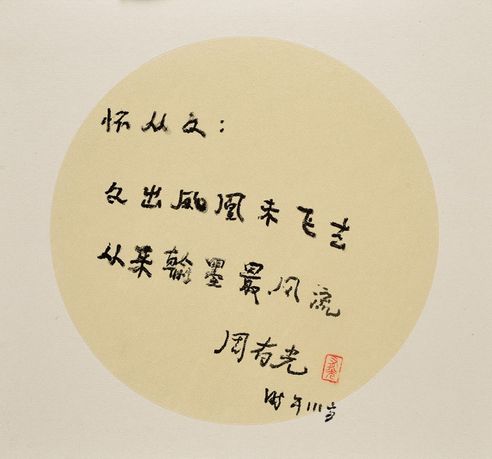 怀从文：
文出凤凰未飞去
从来翰墨最风流
周有光
时年111岁